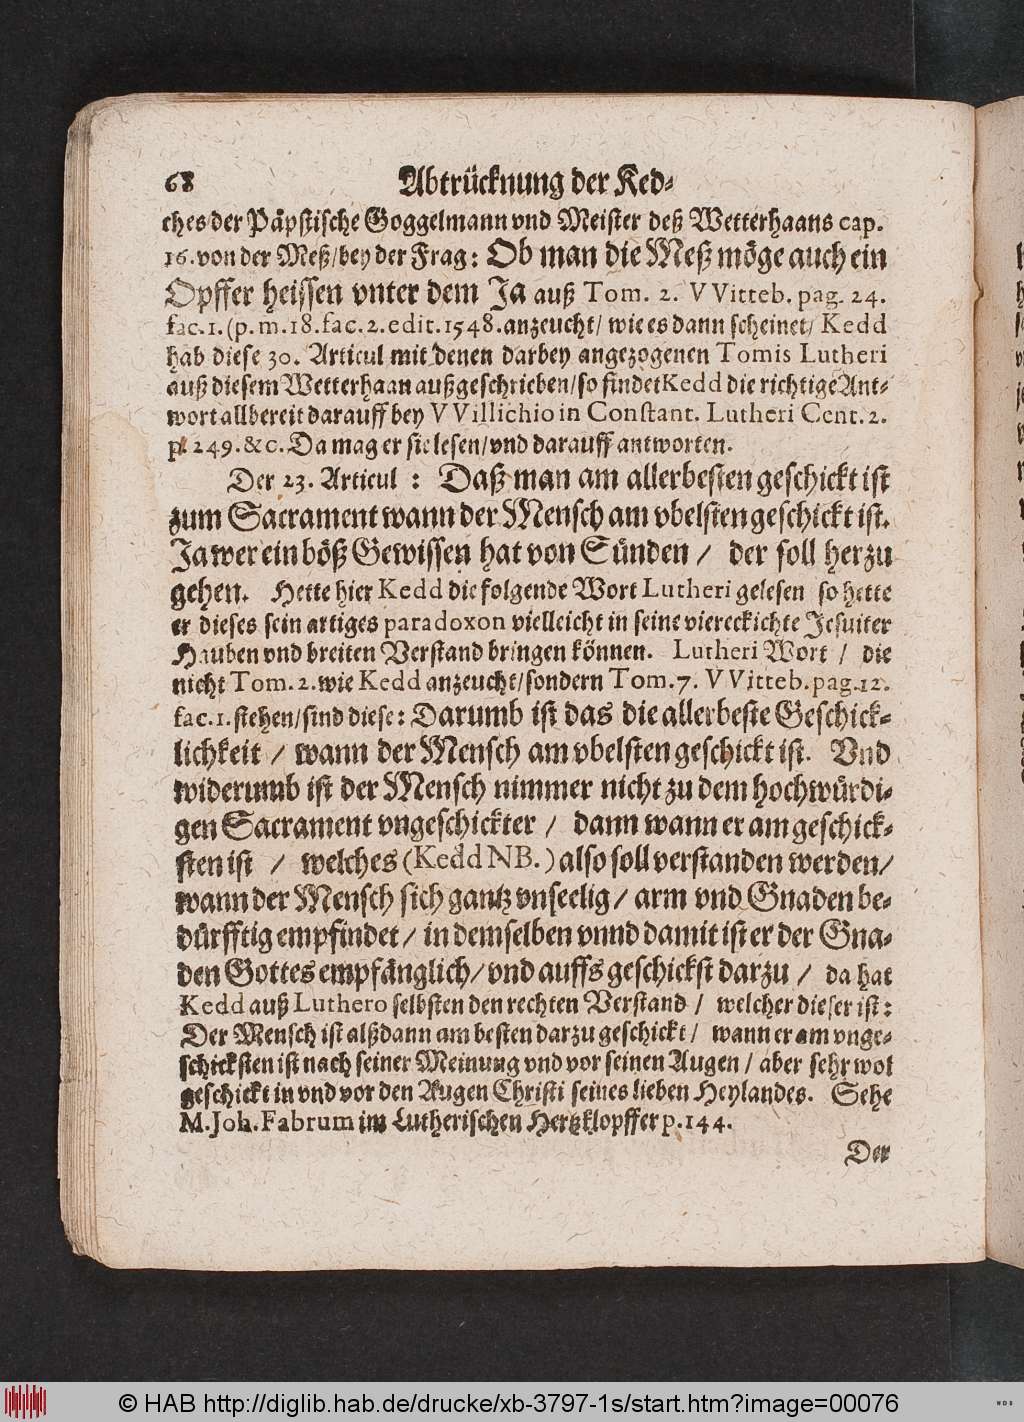 68 Abtrücknung der Ked-
ches der Päpstische Goggelmann vnd Meister deß Wetterhaans cap.
16. von der Meß/bey der Frag: Ob man die Meß möge auch ein
Opffer heissen vnter dem Ja auß Tom. 2. VVitteb. pag. 24.
fac. 1. (p. m. 18. fac. 2. edit. 1548. anzeucht/ wie es dann scheinet/ Kedd
hab diese 30. Articul mit denen darbey angezogenen Tomis Lutheri
auß diesem Wetterhaan außgeschrieben/so findet Kedd die richtige Ant-
wort allbereit darauff bey VVillichio in Constant. Lutheri Cent. 2.
p. 249. &c. Da mag er sie lesen/vnd darauff antworten.
Der 23. Articul : Daß man am allerbesten geschickt ist
zum Sacrament wann der Mensch am vbelsten geschickt ist.
Ja wer ein böß Gewissen hat von Sünden / der soll herzu
gehen. Hette hier Kedd die folgende Wort Lutheri gelesen so hette
er dieses sein artiges paradoxon vielleicht in seine viereckichte Jesuiter
Hauben vnd breiten Verstand bringen können. Lutheri Wort / die
nicht Tom. 2. wie Kedd anzeucht/sondern Tom. 7. VVitteb. pag. 12.
fac. 1. stehen/sind diese: Darumb ist das die allerbeste Geschick-
lichkeit / wann der Mensch am vbelsten geschickt ist. Vnd
widerumb ist der Mensch nimmer nicht zu dem hochwürdi-
gen Sacrament vngeschickter / dann wann er am geschick-
sten ist / welches (Kedd NB.) also soll verstanden werden/
wann der Mensch sich gantz vnseelig/ arm vnd Gnaden be-
dürfftig empfindet/ in demselben vnnd damit ist er der Gna-
den Gottes empfänglich/ vnd auffs geschickst darzu / da hat
Kedd auß Luthero selbsten den rechten Verstand / welcher dieser ist:
Der Mensch ist alßdann am besten darzu geschickt/ wann er am vnge-
schicksten ist nach seiner Meinung vnd vor seinen Augen / aber sehr wol
geschickt in vnd vor den Augen Christi seines lieben Heylandes. Sehe
M. Joh. Fabrum im Lutherischen Hertzklopffer p. 144.
Der
© HAB http://diglib.hab.de/drucke/xb-3797-1s/start.htm?image=00076